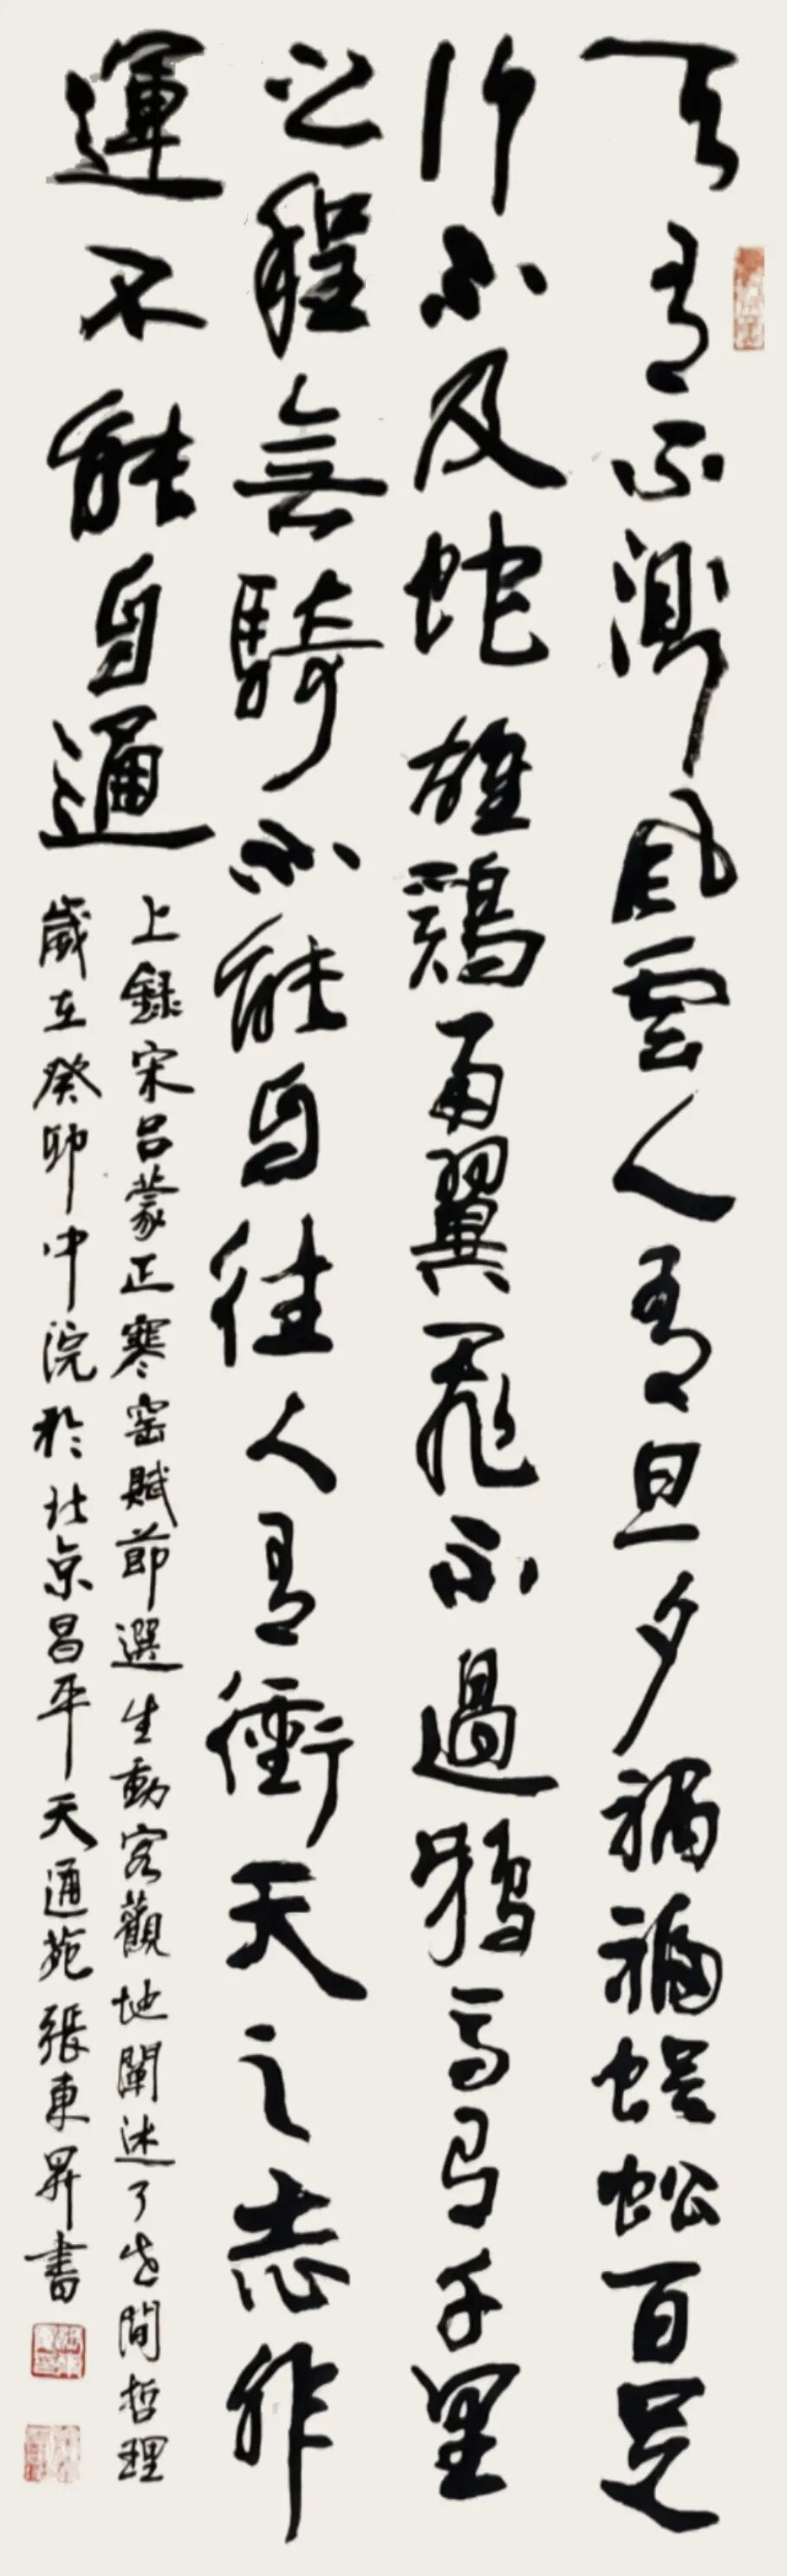 天有不測風雲人有旦夕禍福蜈蚣百足
行不及蛇雄鷄兩翼飛不過鴉馬有千里
之程無騎不能自往人有衝天之志非
運不能自通
上録宋吕蒙正寒窑賦節選生動客觀地闡述了世間哲理
歲在癸卯中浣於北京昌平天通苑張東昇書